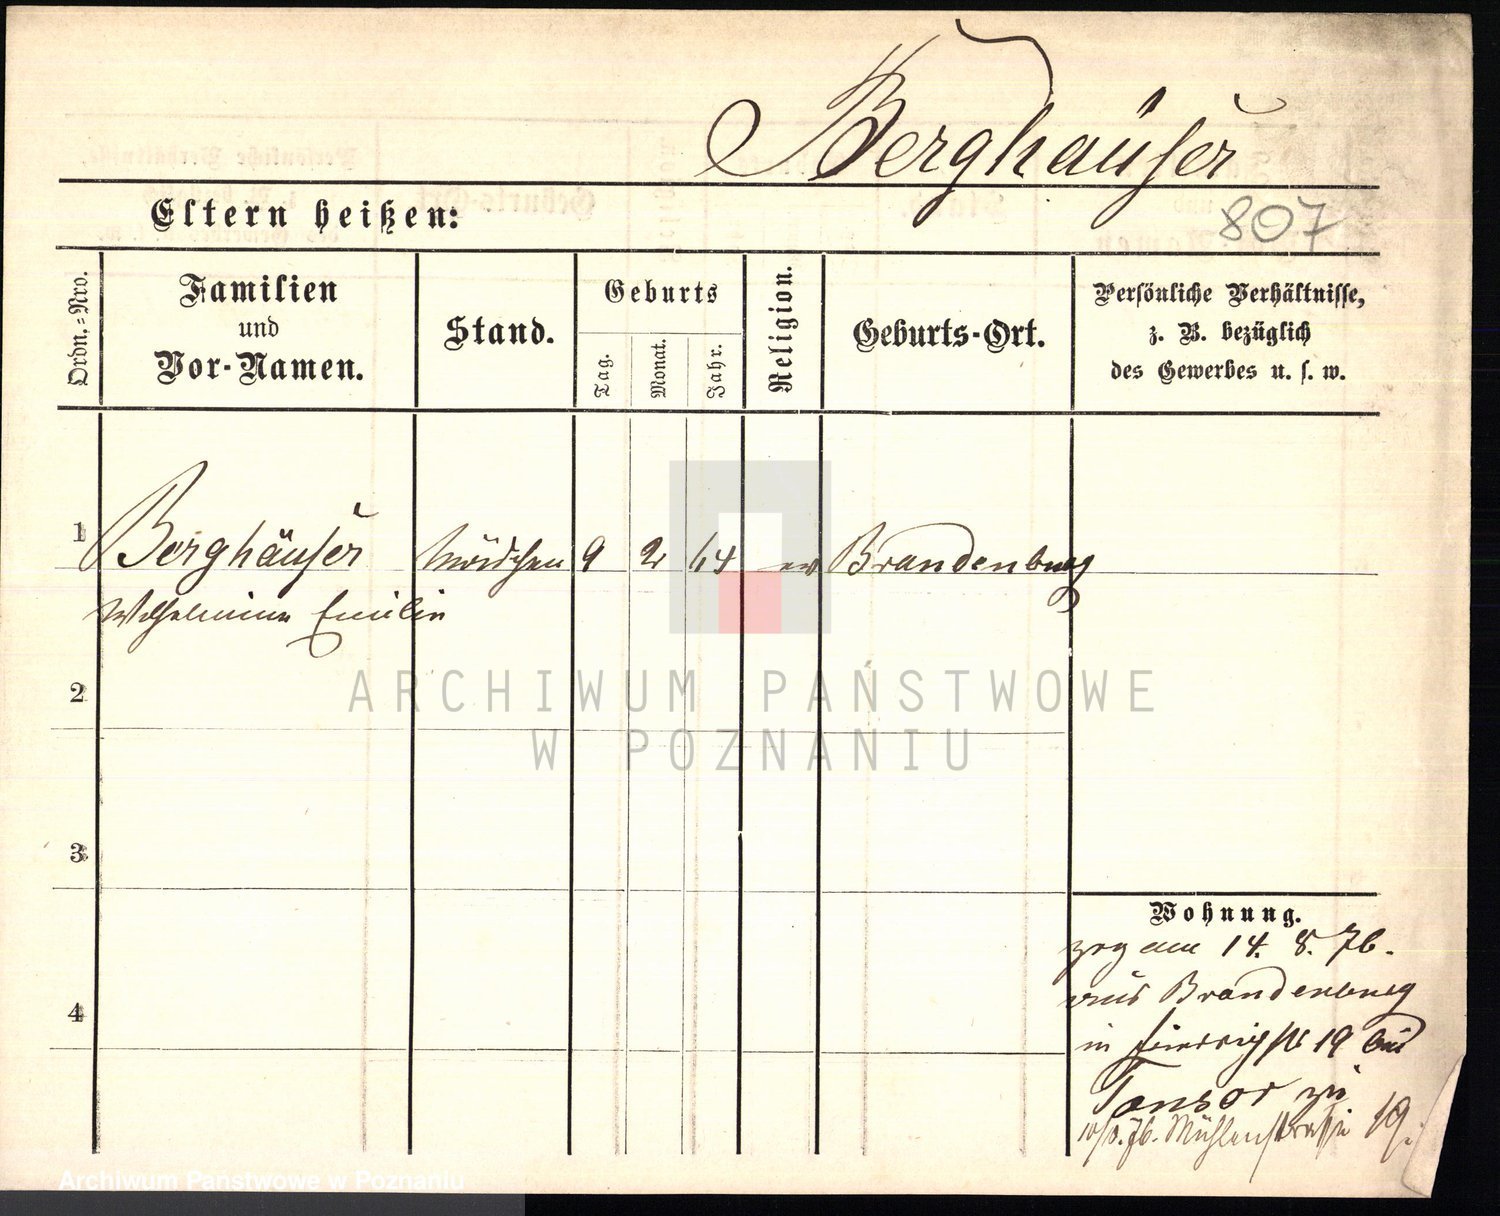 Berghäuser
Eltern heißen:
807
Ordn.=Nro.
Familien
und
Vor-Namen.
Stand.
Geburts
Tag.
Monat.
Jahr.
Religion.
Geburts-Ort.
Persönliche Verhältnisse,
z. B. bezüglich
des Gewerbes u. s. w.
1
Berghäuser
Mädchen
9
2
64
ev
Brandenburg
Wilhelmine Emilie
2
3
4
Wohnung.
zog am 14. 8. 76.
aus Brandenburg
in 19 bei
zu
76. Mühlenstraße 19.
ARCHIWUM PAŃSTWOWE
W POZNANIU
Archiwum Państwowe w Poznaniu